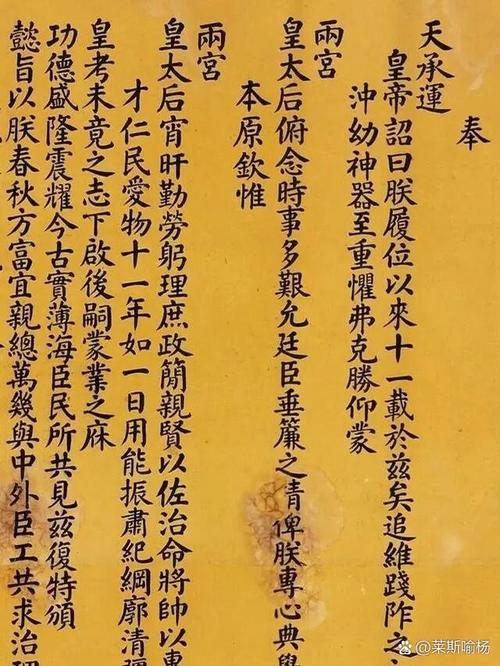 奉
天承運
皇帝詔曰朕履位以來十一載於茲矣追維踐阼之
沖幼神器至重懼弗克勝仰蒙
兩宮
皇太后俯念時事多艱允廷臣垂簾之請俾朕專心典學
本原欽惟
兩宮
皇太后宵旰勤勞躬理庶政簡親賢以佐治命將帥以專
才仁民愛物十一年如一日用能振肅紀綱廓清疆
皇考未竟之志下啟後嗣蒙業之庥
功德盛隆震耀今古實薄海臣民所共見茲復特頒
懿旨以朕春秋方富宜親總萬幾與中外臣工共求治
@莱斯喻杨